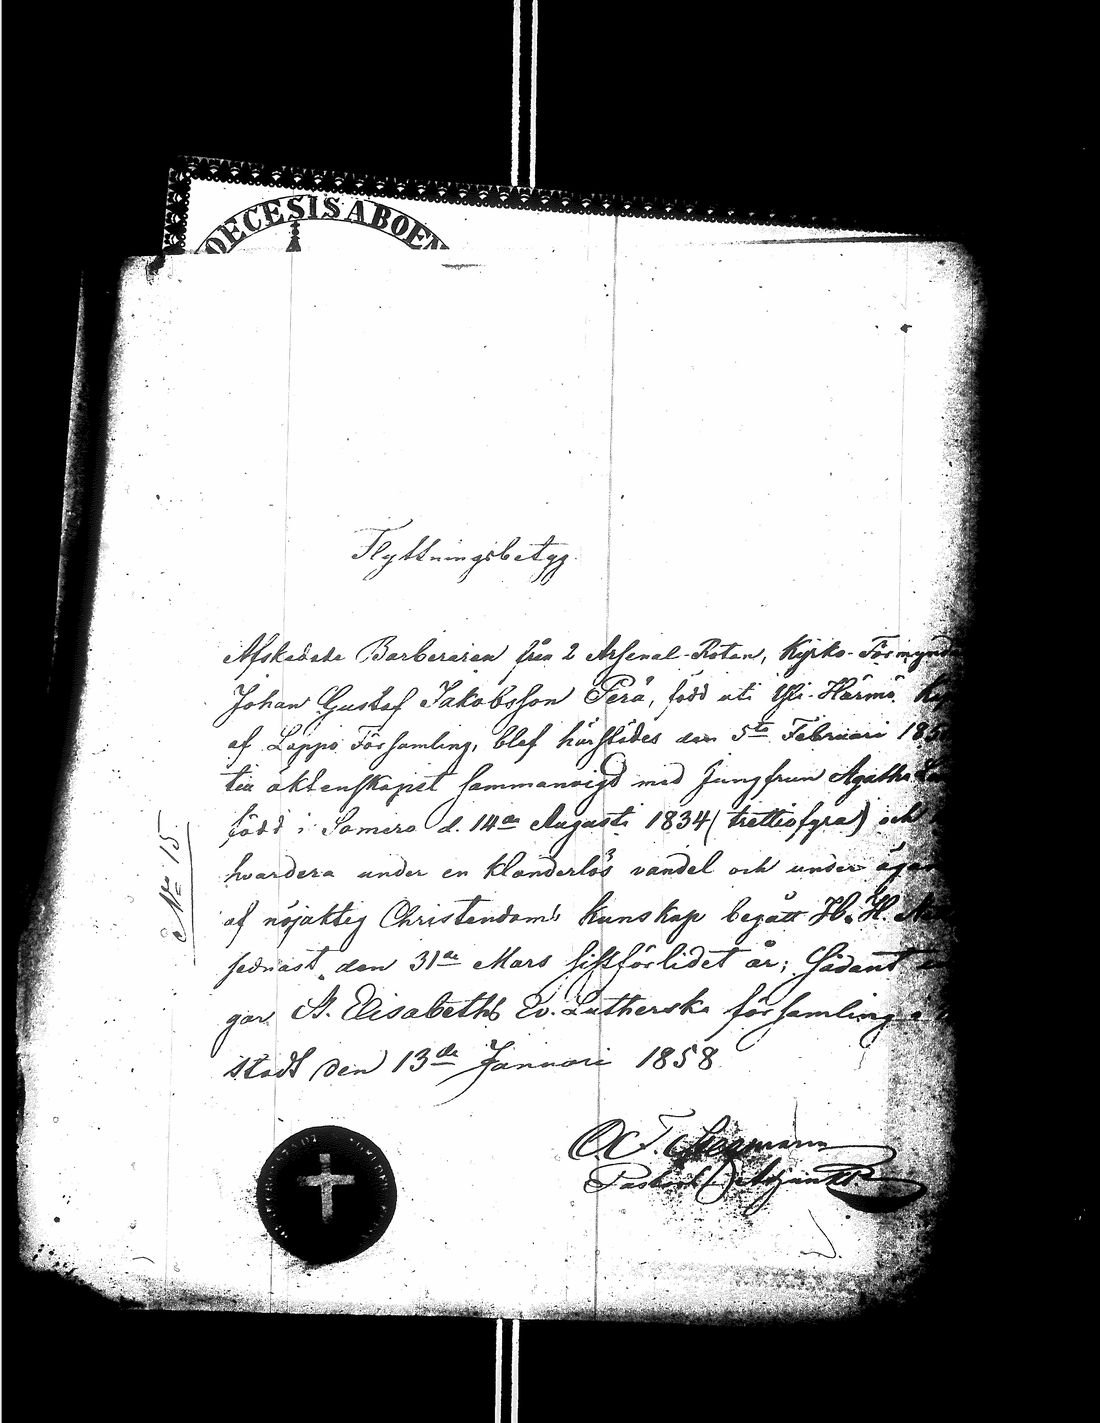 DECESIS ABOEN
Flyttningsbetyg.
Afskedade Barberaren från 2 Arsenal-Rotan, Kyrko-Förmynd
Johan Gustaf Jakobsson Perä, född uti Yli-Härmä
af Lappo Församling, blef härstädes den 5te Februari 185
till äktenskapet sammanvigd med Jungfrun Agatha
född i Somero d. 14de Augusti 1834 (trettiofyra) och
hvardera under en klanderlös vandel och under
af nöjaktig Christendoms kunskap begått H. H.
sednast den 31de Mars sistförlidet år; Sådant
gar St. Elisabeths Ev. Lutherska församling
stadt den 13de Januari 1858
No 15
Pastors Adjunkt